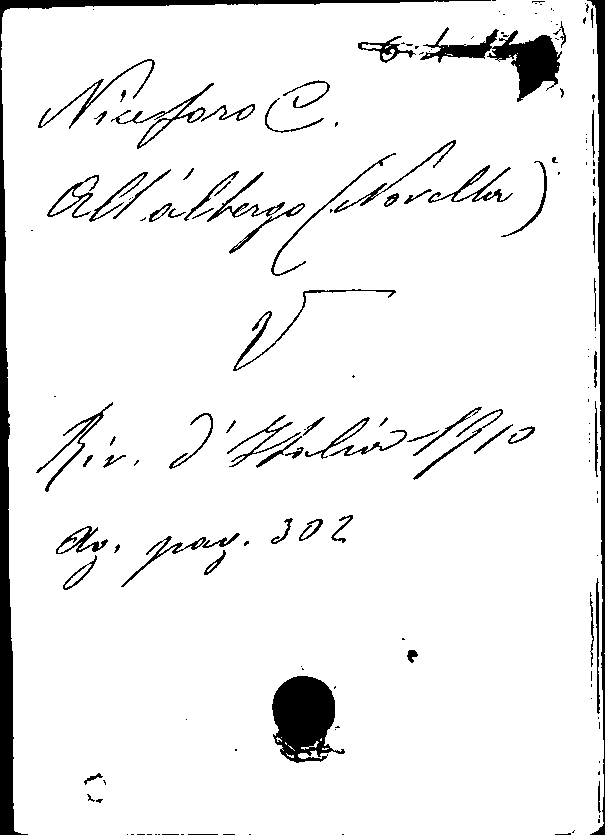 Niceforo C.
All'albergo (Novella)
V
Riv. d'Italia 1910
Ag. pag. 302